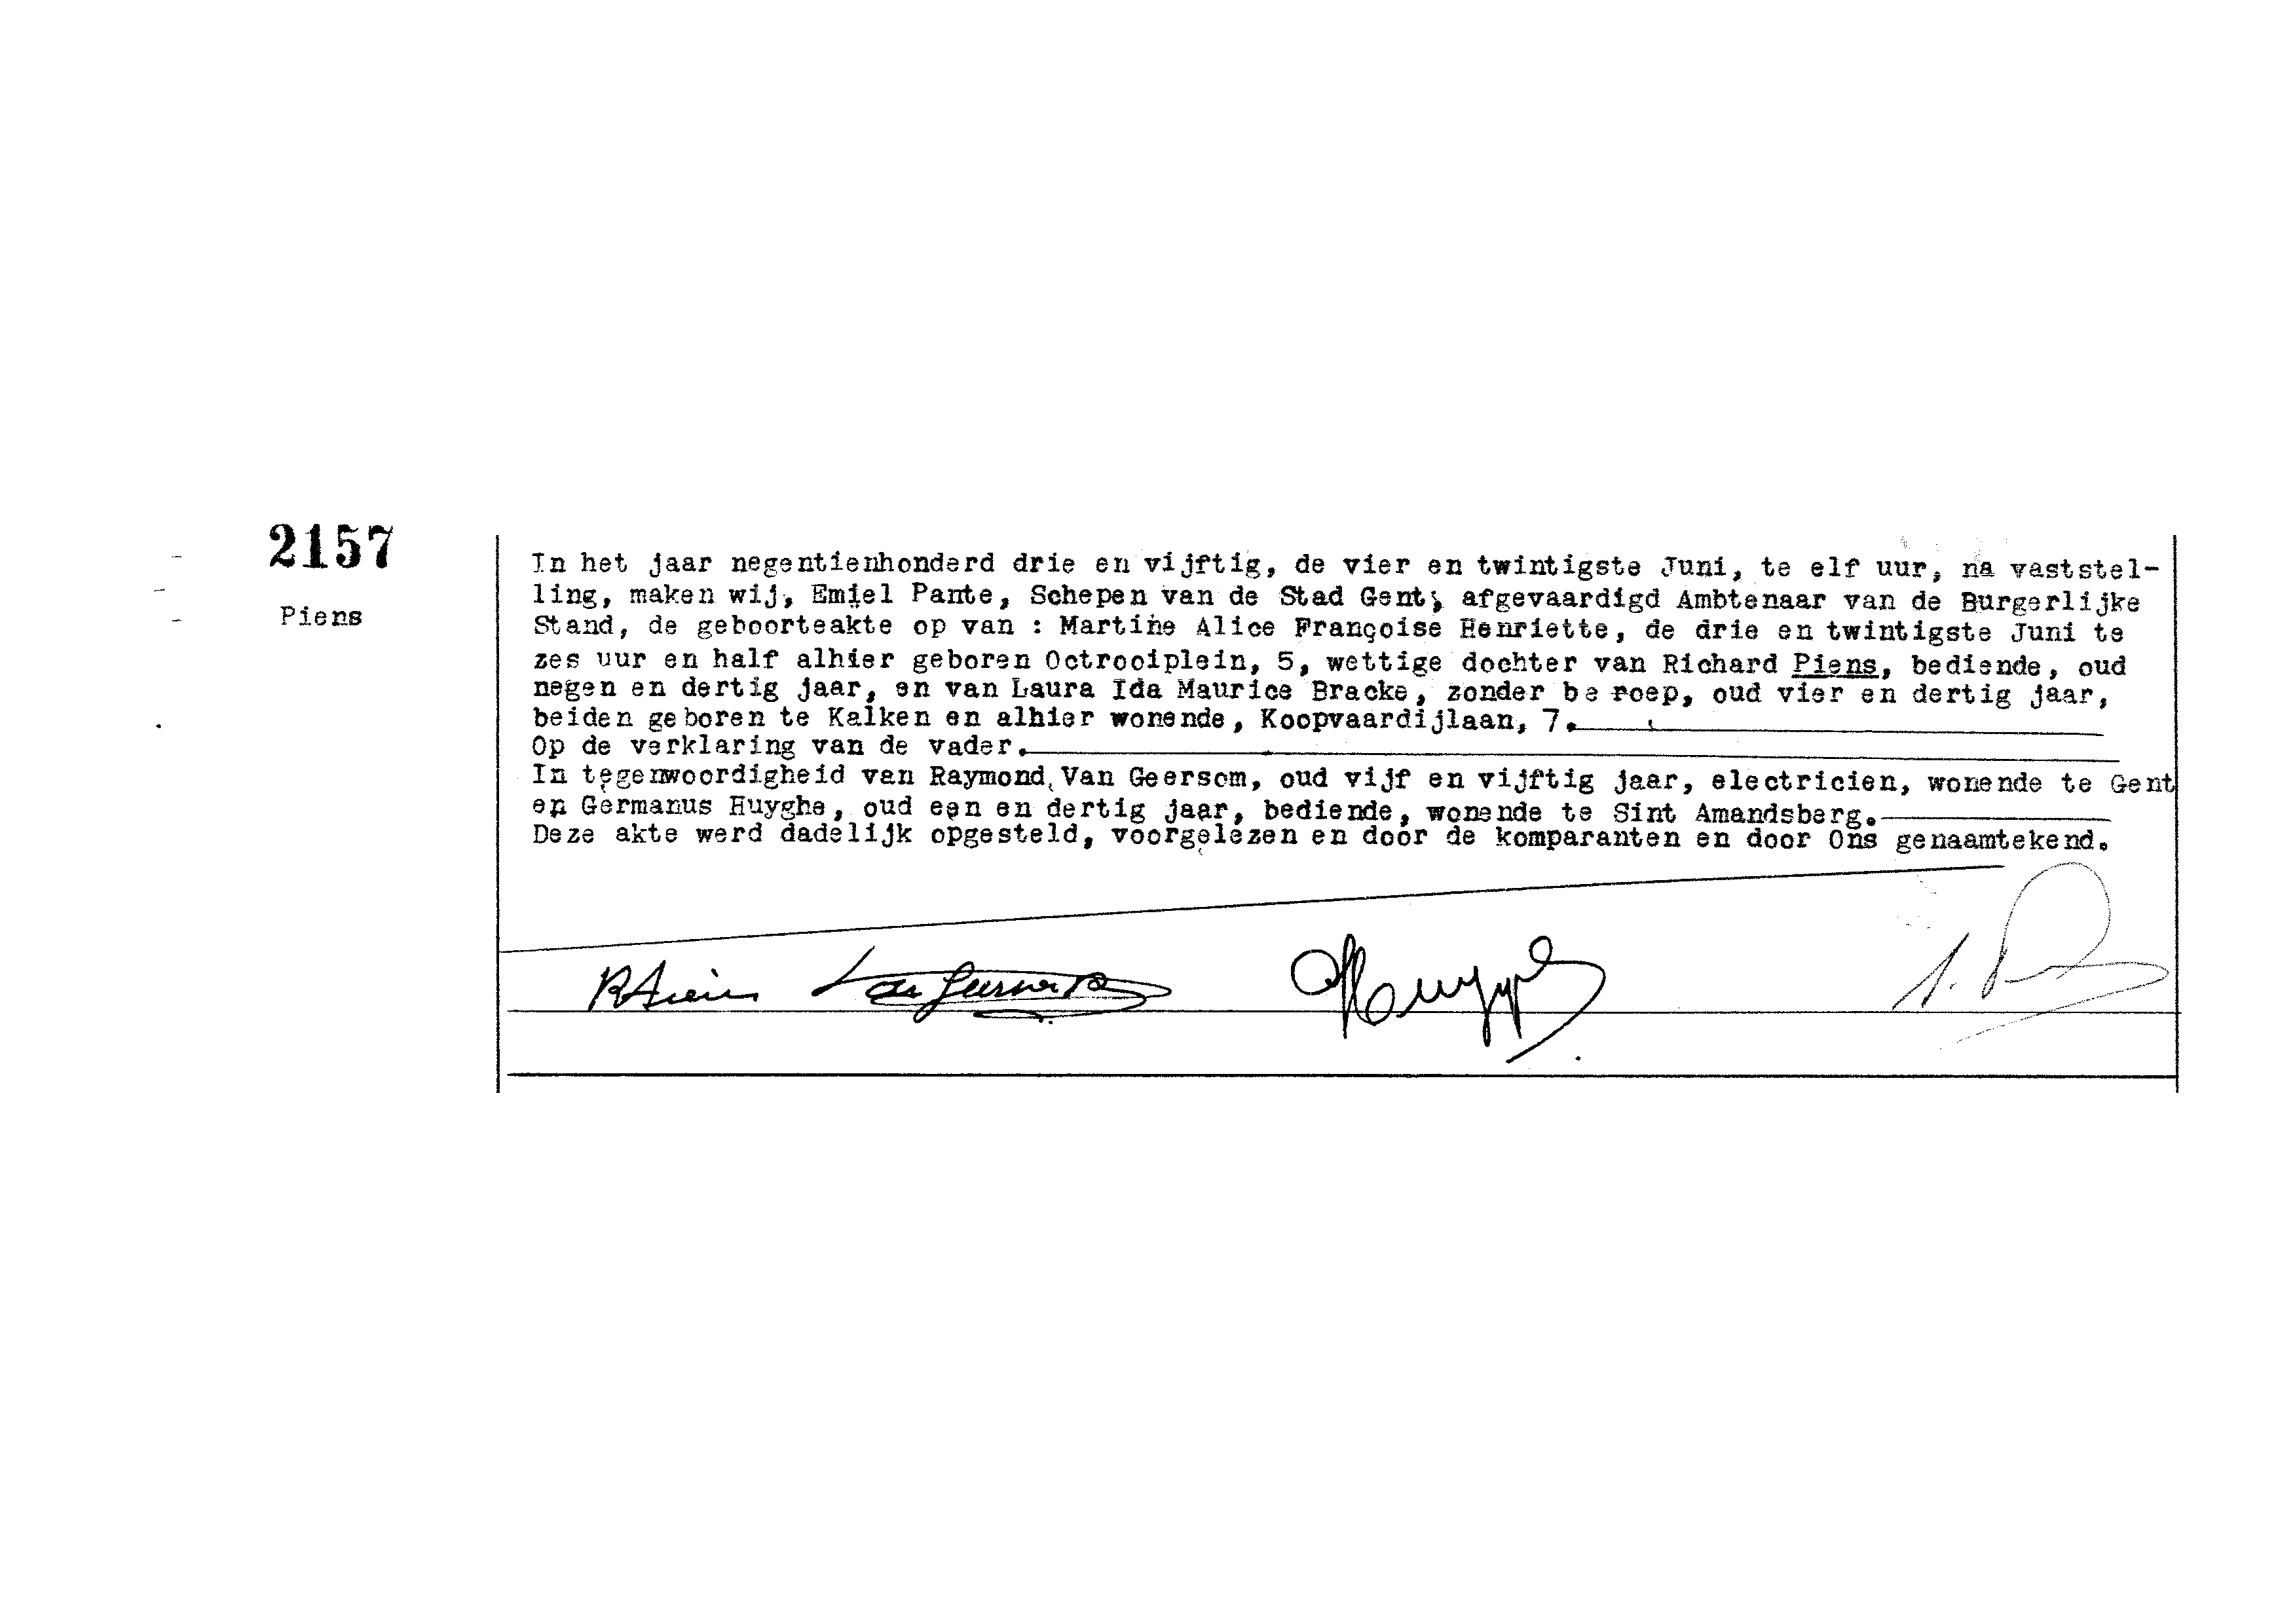 2157
Piens
In het jaar negentienhonderd drie en vijftig, de vier en twintigste Juni, te elf uur, na vaststel-
ling, maken wij, Emiel Pante, Schepen van de Stad Gent, afgevaardigd Ambtenaar van de Burgerlijke
Stand, de geboorteakte op van : Martine Alice Françoise Henriette, de drie en twintigste Juni te
zes uur en half alhier geboren Octrooiplein, 5, wettige dochter van Richard Piens, bediende, oud
negen en dertig jaar, en van Laura Ida Maurice Bracke, zonder beroep, oud vier en dertig jaar,
beiden geboren te Kalken en alhier wonende, Koopvaardijlaan, 7.
Op de verklaring van de vader.
In tegenwoordigheid van Raymond Van Geersom, oud vijf en vijftig jaar, electricien, wonende te Gent
en Germanus Huyghe, oud een en dertig jaar, bediende, wonende te Sint Amandsberg.
Deze akte werd dadelijk opgesteld, voorgelezen en door de komparanten en door Ons genaamtekend.